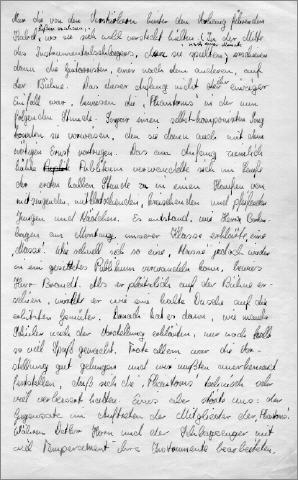 Man die von den Verstärkern hinter den Vorhang führenden
Kabel, wo sie sich wohl versteckt hielten. In der Mitte
des Instrumentalschlagers, den sie spielten, erschienen
dann die Gitarristen, einer nach dem anderen, auf
der Bühne. Das dieser Anfang nicht der einzige
Einfall war, bewiesen die "Phantoms" in der nun
folgenden Stunde. Sogar einen selbst komponierten Song
hatten sie vorzuweisen, den sie dann auch mit dem
nötigen Ernst vortrugen. Das am Anfang ziemlich
Publikum verwandelte sich im Laufe
der ersten halben Stunde in einen Haufen von
mitsingenden, mitklatschenden, kreischenden und pfeifenden
Jungen und Mädchen. Es entstand, wie Herr
am Montag unserer Klasse erklärte, eine
"Masse". Wie schnell sich so eine "Masse" jedoch wieder
in ein gesittetes Publikum verwandeln kann, bewies
Herr Brandt. Als er plötzlich auf der Bühne er-
schien, wirkte er wie eine kalte Dusche auf die
erhitzten Gemüter. Danach hat es dann, wie manche
Schüler nach der Vorstellung erklärten, nur noch halb
so viel Spaß gemacht. Trotz allem war die Vor-
stellung gut gelungen und wir mußten anerkennend
feststellen, daß sich die "Phantoms" technisch sehr
viel verbessert hatten. Eines aber störte uns: der
Gegensatz im Auftreten der Mitglieder der Phantoms.
Während Detlev Horn und der Schlagzeuger mit
viel Temperament ihre Instrumente bearbeiteten,